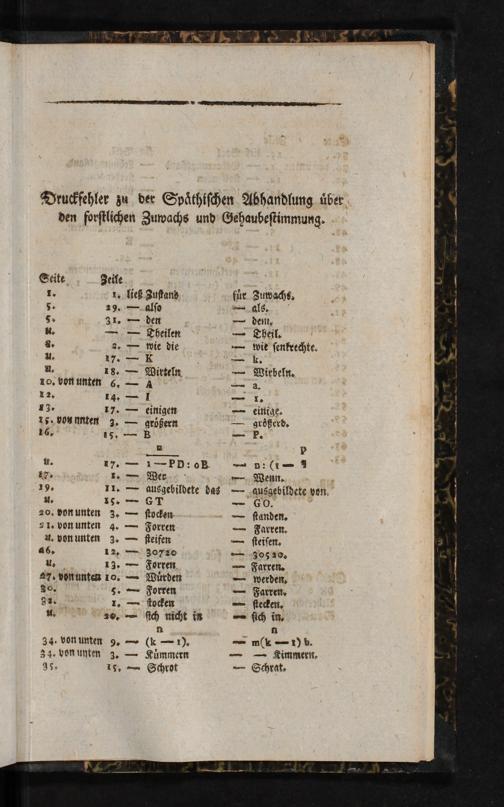 Druckfehler zu der Späthischen Abhandlung über
den forstlichen Zuwachs und Gehaubestimmung.
Seite Zeile
1. 1. ließ Zustand für Zuwachs.
5. 29. — also — als.
5. 31. — den — dem.
u. — — Theilen — Theil.
8. 2. — wie die — wie senkrechte.
u. 17. — K — k.
u. 18. — Wirteln — Wirbeln.
10. von unten 6. — A — a.
12. 14. — I — 1.
13. 17. — einigen — einige.
15. von unten 3. — größern — größerd.
16. 15. — B — P.
n p
u. 17. — 1 — PD: oB — n: (1 — ¶
17. 1. — Wer — Wenn.
19. 11. — ausgebildete das — ausgebildete von.
u. 15. — GT — GO.
20. von unten 3. — stocken — standen.
21. von unten 4. — Forren — Farren.
u. von unten 3. — steifen — steisen.
26. 12. — 30720 — 30520.
u. 13. — Forren — Farren.
27. von unten 10. — Würden — werden.
30. 5. — Forren — Farren.
32. 1. — stocken — stecken.
u. 20. — sich nicht in — sich in.
n n
34. von unten 9. — (k — 1). — m(k — 1) b.
34. von unten 3. — Kümmern — — Kimmern.
35. 15. — Schrot — Schrat.